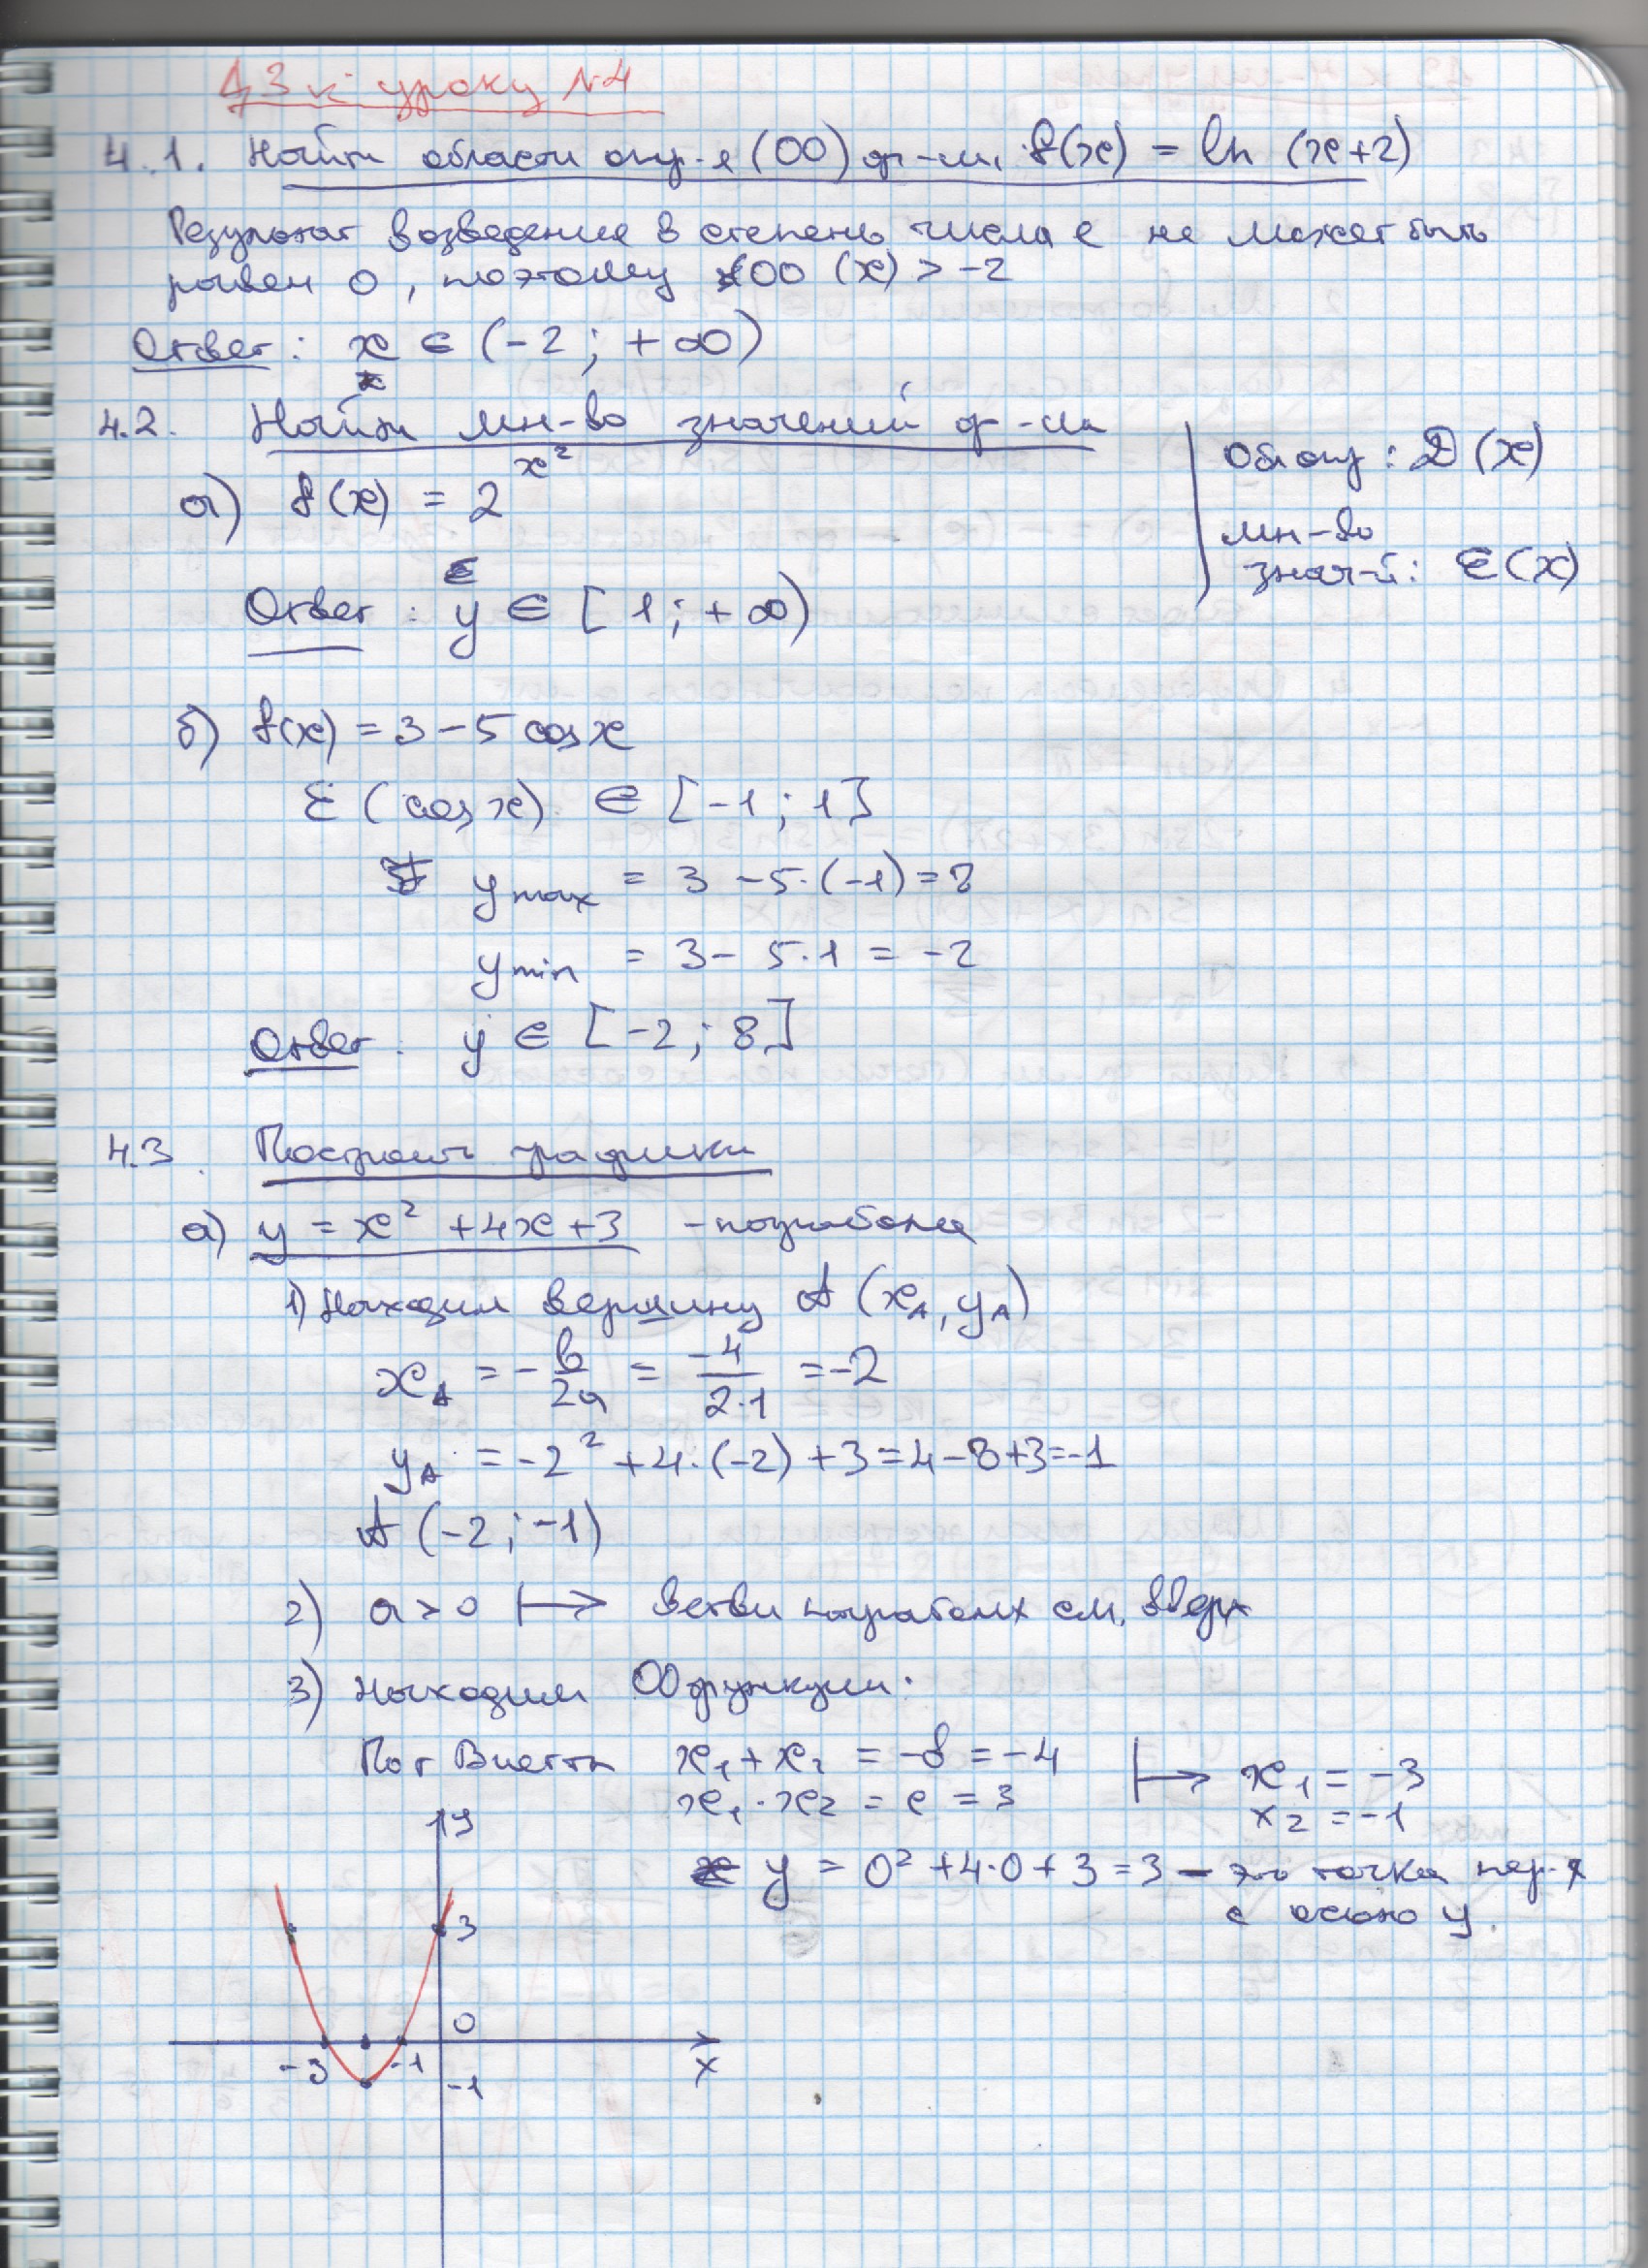 ДЗ к уроку №4
4.1. Найти области опр-я (ОО) ф-ии f(x) = ln (x+2)
Результат возведения в степень числа e не может быть
равен 0, поэтому ОО (x) > -2
Ответ: x ∈ (-2; +∞)
4.2. Найти мн-во значений ф-ии
а) f(x) = 2^x²
Обл опр: D(x)
мн-во
знач-й: E(x)
Ответ: y ∈ [1; +∞)
б) f(x) = 3 - 5 cos x
E (cos x) ∈ [-1; 1]
y max = 3 - 5·(-1) = 8
y min = 3 - 5·1 = -2
Ответ. y ∈ [-2; 8]
4.3. Построить графики
а) y = x² + 4x + 3 - парабола
1) Находим вершину A (x_A, y_A)
x_A = - b/2a = -4/2·1 = -2
y_A = -2² + 4·(-2) + 3 = 4 - 8 + 3 = -1
A (-2; -1)
2) a > 0 ↦ ветви параболы см. вверх
3) Находим ОО функции:
По т Виетта x₁ + x₂ = -b = -4 ↦ x₁ = -3
x₁ · x₂ = c = 3 x₂ = -1
y = 0² + 4·0 + 3 = 3 - это точка пер-я
с осью y.
y
3
0
-3 -1 x
-1